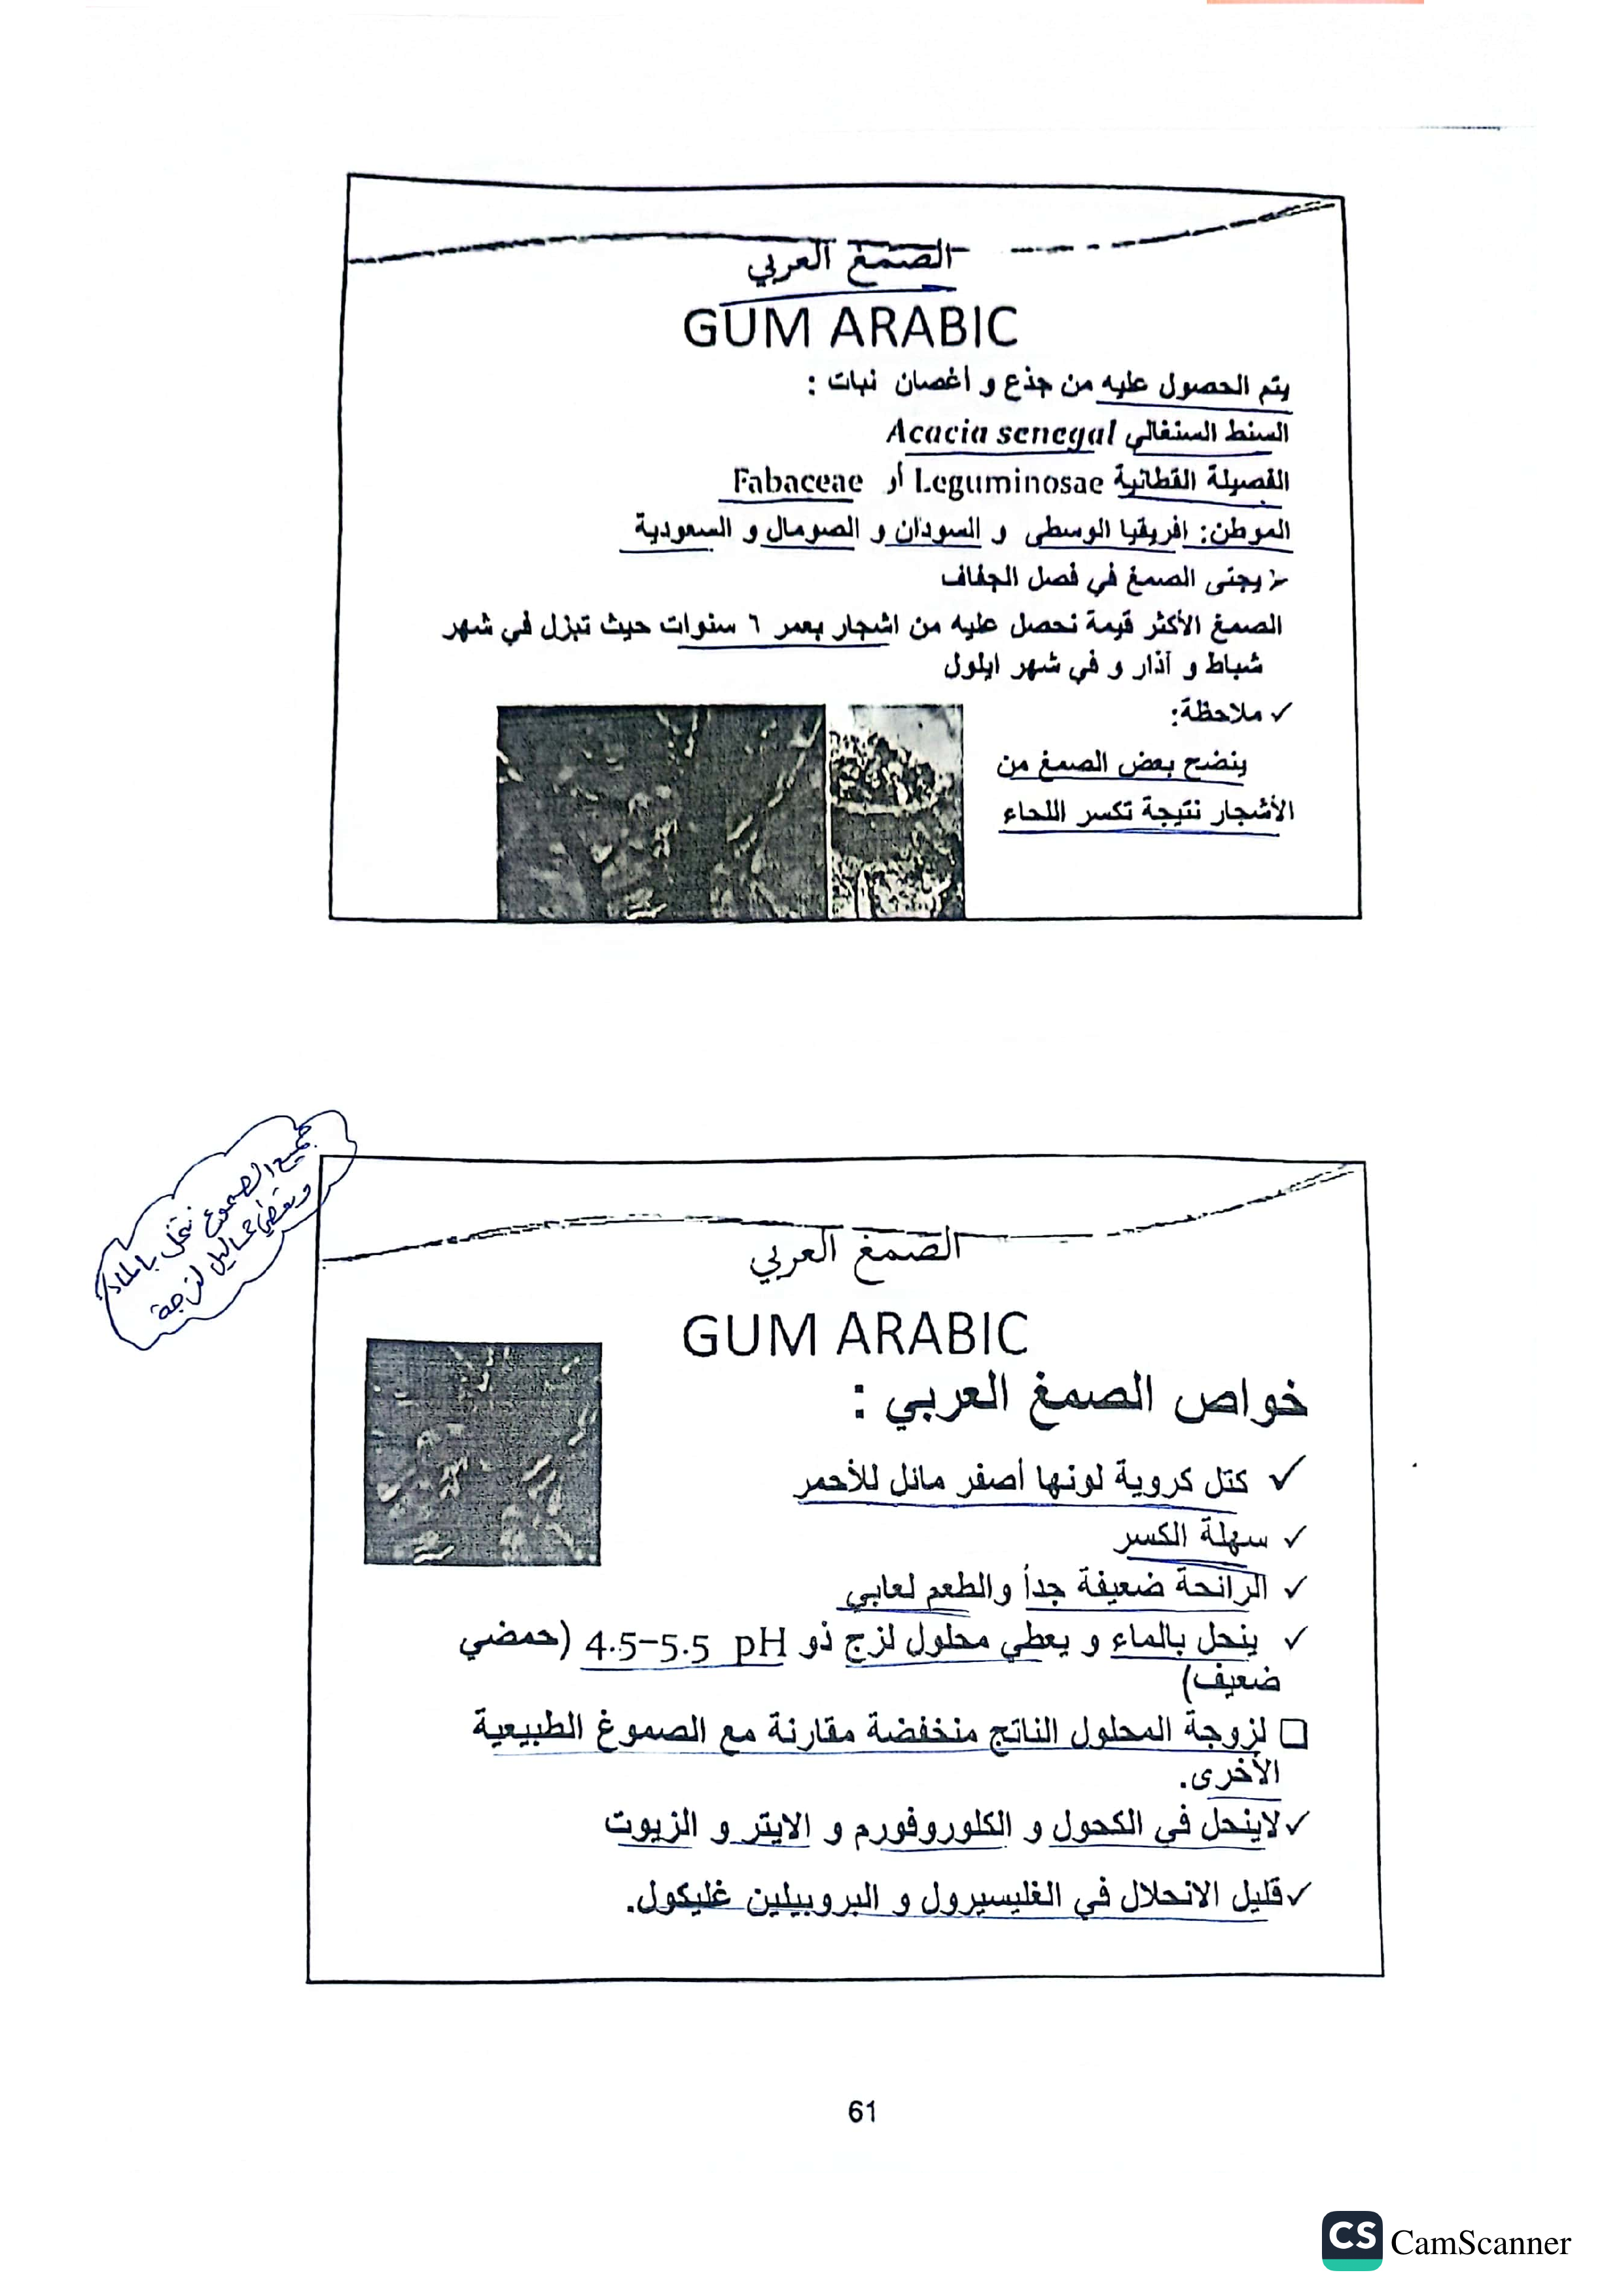 الصمغ العربي
GUM ARABIC
يتم الحصول عليه من جذع و أغصان نبات :
السنط السنغالي Acacia senegal
الفصيلة القطانية Leguminosae أو Fabaceae
الموطن: افريقيا الوسطى و السودان و الصومال و السعودية
يجنى الصمغ في فصل الجفاف
الصمغ الأكثر قيمة نحصل عليه من اشجار بعمر ٦ سنوات حيث تبزل في شهر
شباط و آذار و في شهر ايلول
✓ ملاحظة:
ينضح بعض الصمغ من
الأشجار نتيجة تكسر اللحاء
جميع الصموغ تنحل بالماء
وتعطي محاليل لزجة
الصمغ العربي
GUM ARABIC
خواص الصمغ العربي :
✓ كتل كروية لونها أصفر مائل للأحمر
✓ سهلة الكسر
✓ الرائحة ضعيفة جداً والطعم لعابي
✓ ينحل بالماء و يعطي محلول لزج ذو pH 4.5–5.5 (حمضي
ضعيف)
❑ لزوجة المحلول الناتج منخفضة مقارنة مع الصموغ الطبيعية
الأخرى.
✓ لاينحل في الكحول و الكلوروفورم و الايتر و الزيوت
✓ قليل الانحلال في الغليسيرول و البروبيلين غليكول.
61
CS CamScanner